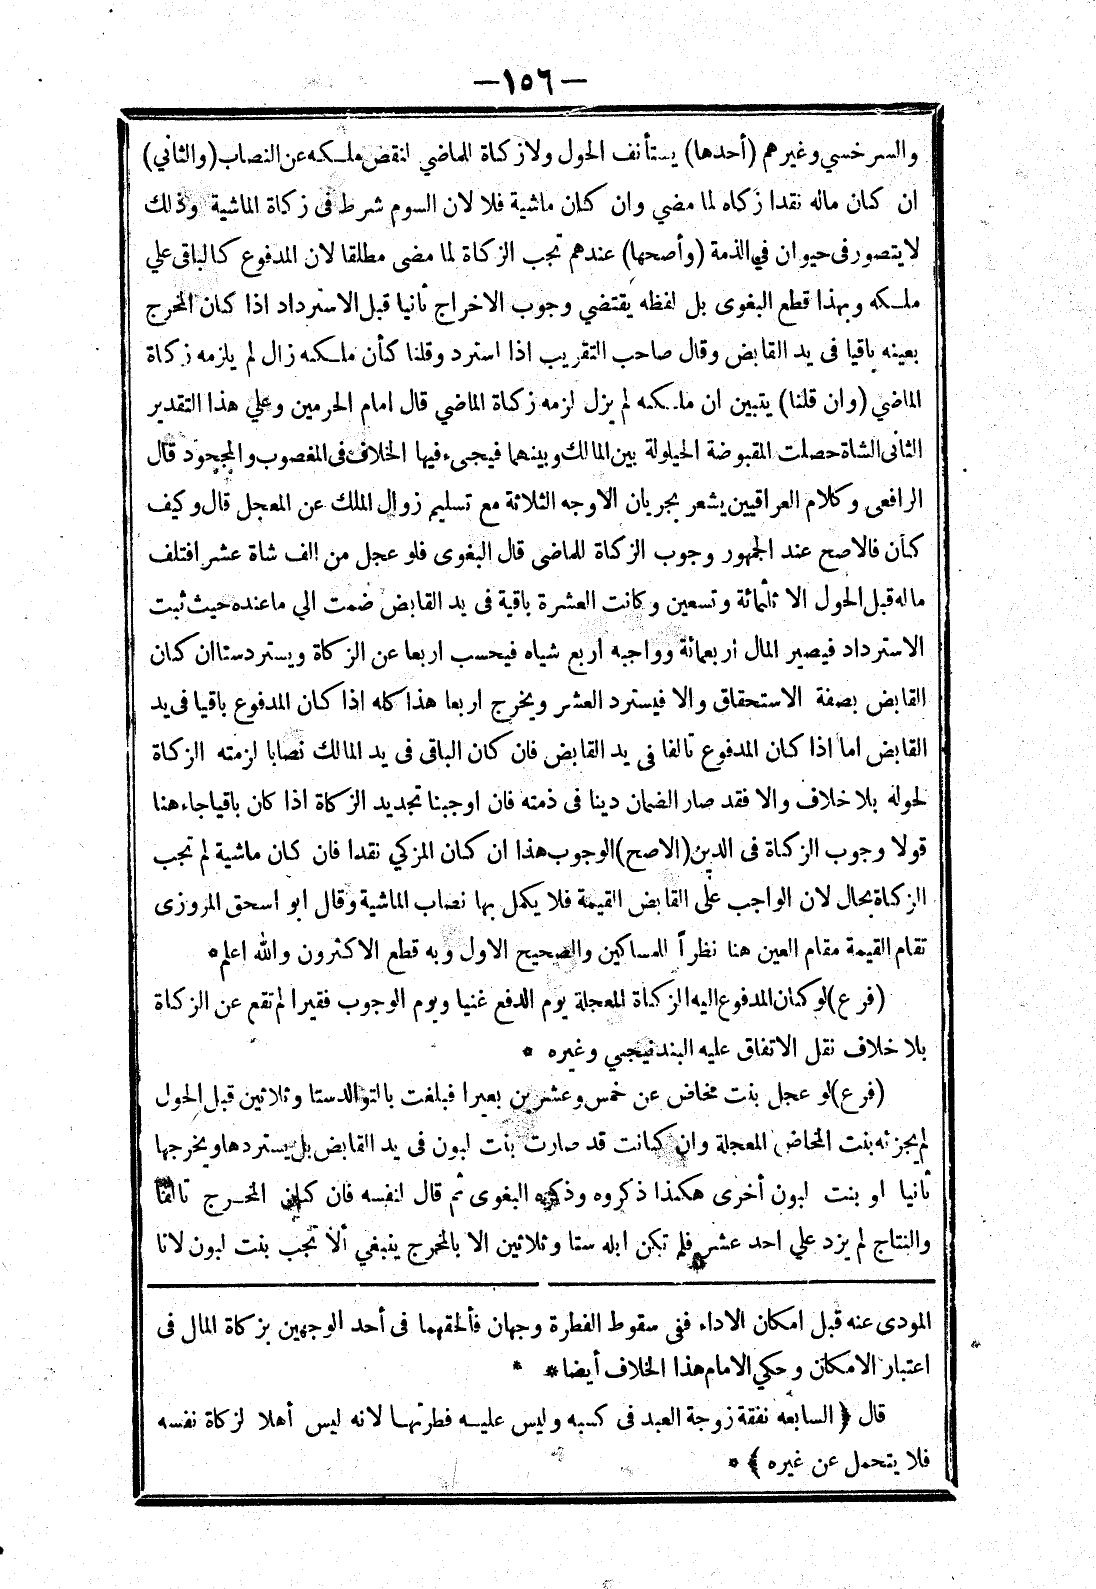 —١٥٦—
والسرخسي وغيرهم (أحدها) يستأنف الحول ولا زكاة للماضي لنقص ملكه عن النصاب (والثاني)
ان كان ماله نقدا زكاه لما مضي وان كان ماشية فلا لان السوم شرط فى زكاة الماشية وذلك
لا يتصور فى حيوان في الذمة (وأصحها) عندهم تجب الزكاة لما مضى مطلقا لان المدفوع كالباقى علي
ملكه وبهذا قطع البغوى بل لفظه يقتضي وجوب الاخراج ثانيا قبل الاسترداد اذا كان المخرج
بعينه باقيا فى يد القابض وقال صاحب التقريب اذا استرد وقلنا كأن ملكه زال لم يلزمه زكاة
الماضي (وان قلنا) يتبين ان ملكه لم يزل لزمه زكاة الماضي قال امام الحرمين وعلي هذا التقدير
الثانى الشاة حصلت المقبوضة الحيلولة بين المالك وبينهما فيجىء فيها الخلاف فى المغصوب والمجحود قال
الرافعى وكلام العراقيين يشعر بجريان الاوجه الثلاثة مع تسليم زوال الملك عن المعجل قال وكيف
كان فالاصح عند الجمهور وجوب الزكاة للماضى قال البغوى فلو عجل من الف شاة عشر افتلف
ماله قبل الحول الا ثلثمائة وتسعين وكانت العشرة باقية فى يد القابض ضمت الي ما عنده حيث ثبت
الاسترداد فيصير المال اربعمائة وواجبه اربع شياه فيحسب اربعا عن الزكاة ويسترد ستا ان كان
القابض بصفة الاستحقاق والا فيسترد العشر ويخرج اربعا هذا كله اذا كان المدفوع باقيا فى يد
القابض اما اذا كان المدفوع تالفا فى يد القابض فان كان الباقى فى يد المالك نصابا لزمته الزكاة
لحوله بلا خلاف والا فقد صار الضمان دينا فى ذمته فان اوجبنا تجديد الزكاة اذا كان باقيا جاء هنا
قولا وجوب الزكاة فى الدين (الاصح) الوجوب هذا ان كان المزكي نقدا فان كان ماشية لم تجب
الزكاة بحال لان الواجب على القابض القيمة فلا يكمل بها نصاب الماشية وقال ابو اسحق المروزى
تقام القيمة مقام العين هنا نظراً للمساكين والصحيح الاول وبه قطع الاكثرون والله اعلم *
(فرع) لو كان المدفوع اليه الزكاة المعجلة يوم الدفع غنيا ويوم الوجوب فقيرا لم تقع عن الزكاة
بلا خلاف نقل الاتفاق عليه البندنيجي وغيره *
(فرع) لو عجل بنت مخاض عن خمس وعشرين بعيرا فبلغت بالتوالد ستا وثلاثين قبل الحول
لم يجزئه بنت المخاض المعجلة وان كانت قد صارت بنت لبون فى يد القابض بل يستردها ويخرجها
ثانيا او بنت لبون أخرى هكذا ذكروه وذكره البغوى ثم قال لنفسه فان كان المخرج تالفا
والنتاج لم يزد علي احد عشر فلم تكن ابله ستا وثلاثين الا بالمخرج ينبغي ألا تجب بنت لبون لانا
المودى عنه قبل امكان الاداء ففى سقوط الفطرة وجهان فألحقهما فى أحد الوجهين بزكاة المال فى
اعتبار الامكان وحكي الامام هذا الخلاف أيضا * *
قال ﴿ السابعه نفقة زوجة العبد فى كسبه وليس عليه فطرتها لانه ليس أهلا لزكاة نفسه
فلا يتحمل عن غيره ﴾ *